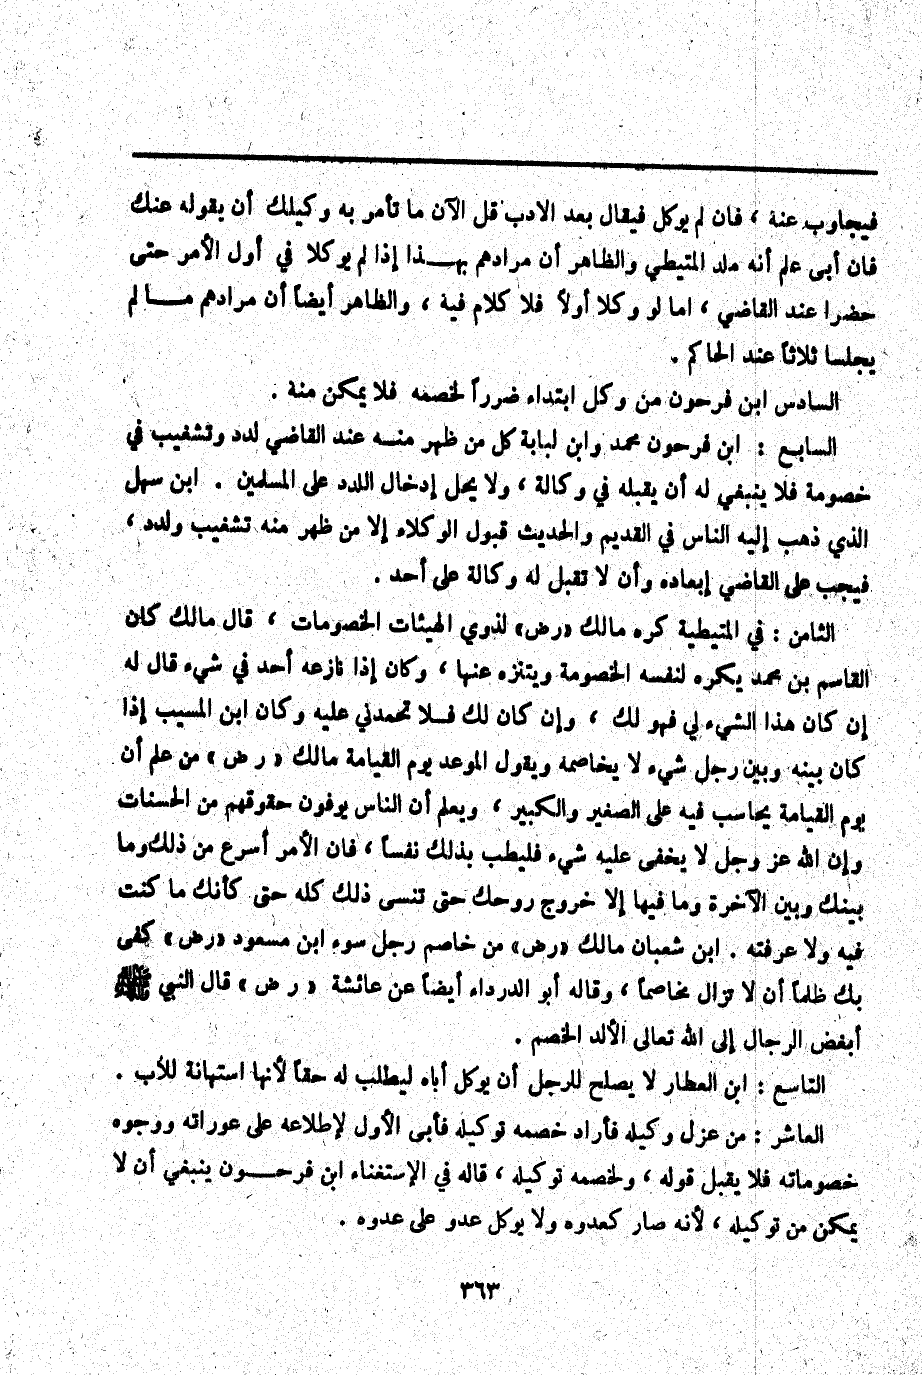 فيجاوب عنة ، فان لم يوكل فيقال بعد الادب قل الآن ما تأمر به وكيلك أن يقوله عنك
فان أبى علم أنه ملد المتيطي والظاهر أن مرادهم بهــذا إذا لم يوكلا في أول الأمر حتى
حضرا عند القاضي ، اما لو وكلا أولاً فلا كلام فية ، والظاهر أيضاً أن مرادهم مــا لم
يجلسا ثلاثاً عند الحاكم .
السادس ابن فرحون من وكل ابتداء ضرراً لخصمه فلا يمكن منة .
السابع : ابن فرحون محمد وابن لبابة كل من ظهر منــه عند القاضي لدد وتشغيب في
خصومة فلا ينبغي له أن يقبله في وكالة ، ولا يحل إدخال اللدد على المسلمين . ابن سهل
الذي ذهب إليه الناس في القديم والحديث قبول الوكلاء إلا من ظهر منه تشغيب ولدد ،
فيجب على القاضي إبعاده وأن لا تقبل له وكالة على أحد .
الثامن : في المتيطية كره مالك «رض» لذوي الهيئات الخصومات ، قال مالك كان
القاسم بن محمد يكره لنفسه الخصومة ويتنزه عنها ، وكان إذا نازعه أحد في شيء قال له
إن كان هذا الشيء لي فهو لك ، وإن كان لك فــلا تحمدني عليه وكان ابن المسيب إذا
كان بينه وبين رجل شيء لا يخاصمه ويقول الموعد يوم القيامة مالك « رض » من علم أن
يوم القيامة يحاسب فيه على الصغير والكبير ، ويعلم أن الناس يوفون حقوقهم من الحسنات
وإن الله عز وجل لا يخفى عليه شيء فليطب بذلك نفساً ، فان الأمر أسرع من ذلك وما
بينك وبين الآخرة وما فيها إلا خروج روحك حتى تنسى ذلك كله حتى كأنك ما كنت
فيه ولا عرفته . ابن شعبان مالك «رض» من خاصم رجل سوء ابن مسعود «رض» كفى
بك ظلماً أن لا تزال مخاصماً ، وقاله أبو الدرداء أيضاً عن عائشة « رض » قال النبي ﷺ
أبغض الرجال إلى الله تعالى الألد الخصم .
التاسع : ابن العطار لا يصلح للرجل أن يوكل أباه ليطلب له حقاً لأنها استهانة للأب .
العاشر : من عزل وكيله فأراد خصمه توكيله فأبى الأول لإطلاعه على عوراته ووجوه
خصوماته فلا يقبل قوله ، ولخصمه توكيله ، قاله في الإستغناء ابن فرحــون ينبغي أن لا
يمكن من توكيله ، لأنه صار كعدوه ولا يوكل عدو على عدوه .
٣٦٣